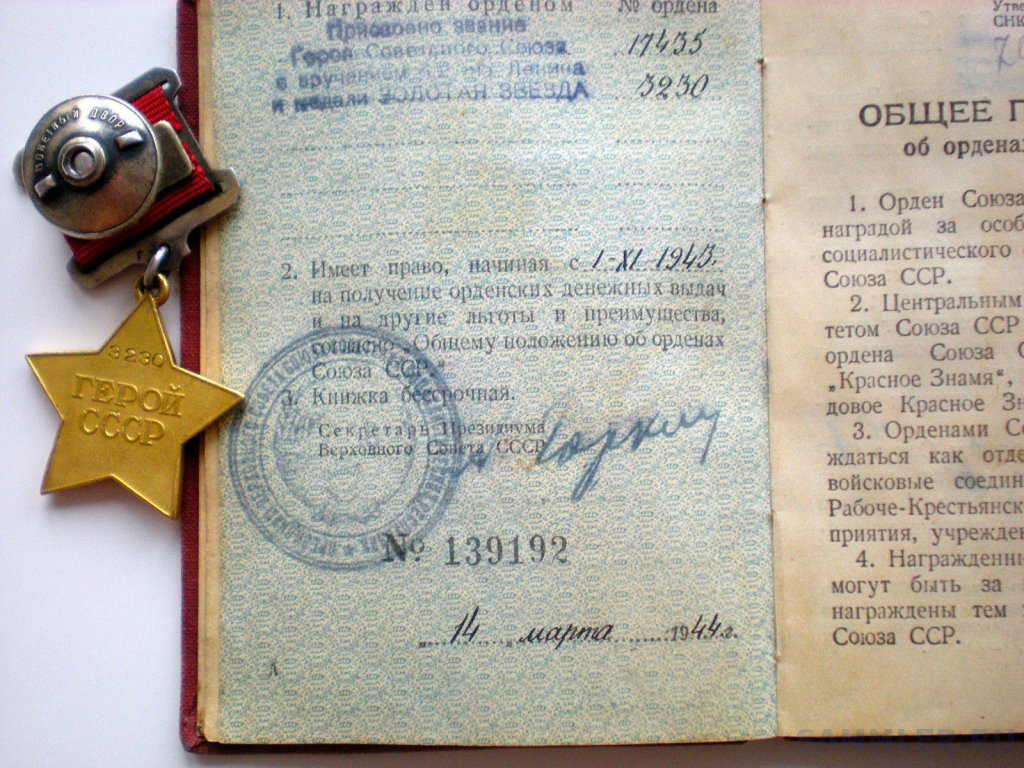 1. Награжден орденом № ордена
Присвоено звание
Героя Советского Союза 17435
с вручением Ленина 3230
и медали ЗОЛОТАЯ ЗВЕЗДА
2. Имеет право, начиная с 1-XI-1943.
на получение орденских денежных выдач
и на другие льготы и преимущества,
согласно „Общему положению об орденах
Союза ССР“
3. Книжка бессрочная.
Секретарь Президиума
Верховного Совета СССР
№ 139192
„ 14 „ марта 1944 г.
МОНЕТНЫЙ ДВОР
3230
ГЕРОЙ
СССР
Утве
СНК
ОБЩЕЕ П
об ордена
1. Орден Союза
наградой за особ
социалистического
Союза ССР.
2. Центральным
тетом Союза ССР
ордена Союза С
„Красное Знамя“,
довое Красное Зн
3. Орденами Со
ждаться как отде
войсковые соедин
Рабоче-Крестьянск
приятия, учрежден
4. Награжденны
могут быть за
награждены тем
Союза ССР.